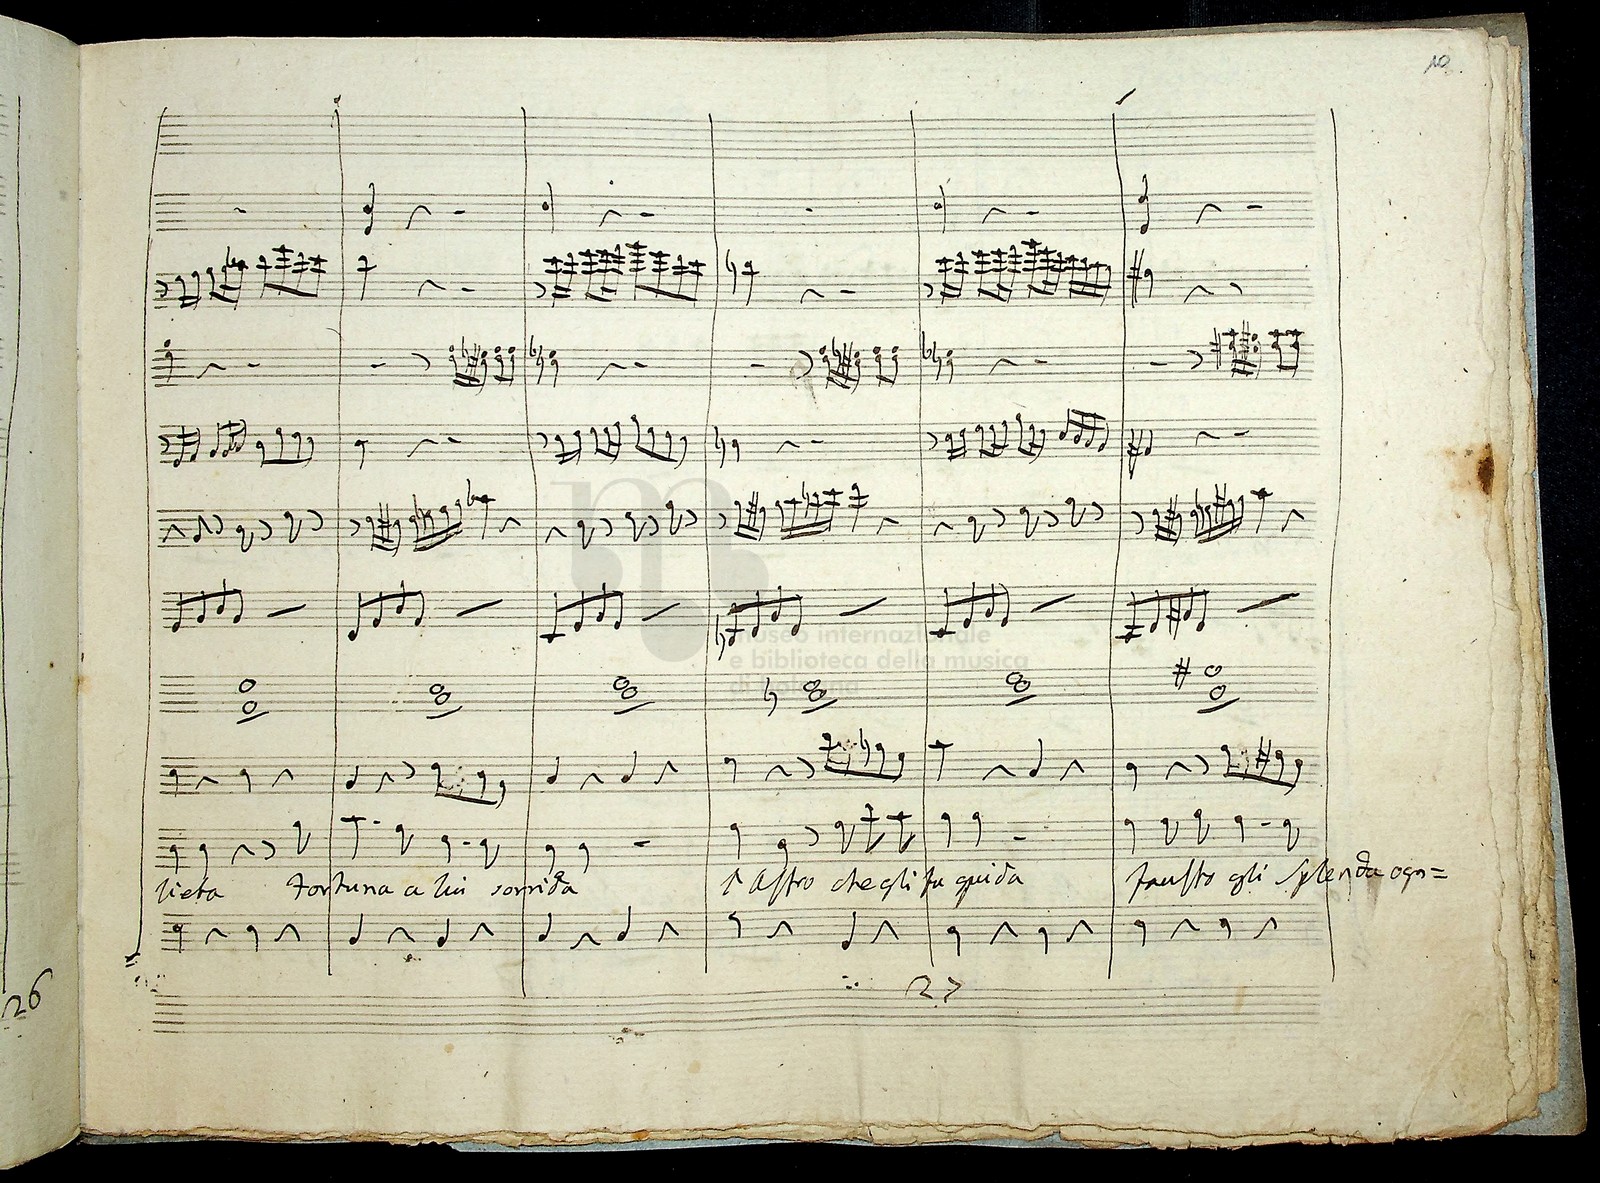 10
museo internazionale
e biblioteca della musica
di bologna
lieta fortuna a lui sorrida l'Astro che gli fu guida fausto gli splenda ogn=
26
27